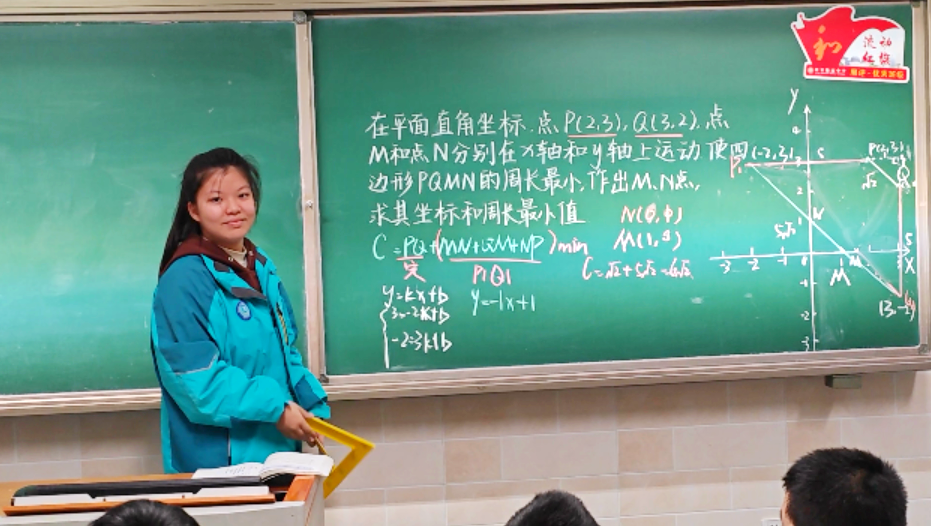 在平面直角坐标.点P(2,3),Q(3,2),点
M和点N分别在x轴和y轴上运动使四
边形PQMN的周长最小,作出M、N点,
求其坐标和周长最小值
C=PQ+(MN+QM+NP)min
定
P1Q1
N(0,1)
M(1,0)
C=√2+5√2=6√2
y=kx+b
3=-2k+b
-2=3k+b
y=-1x+1
流动
红旗
和
y
4
P1(-2,3)
5
√2
Q
2
N
5√2
-3 -2 -1
M
5
X
-1
-2
-3